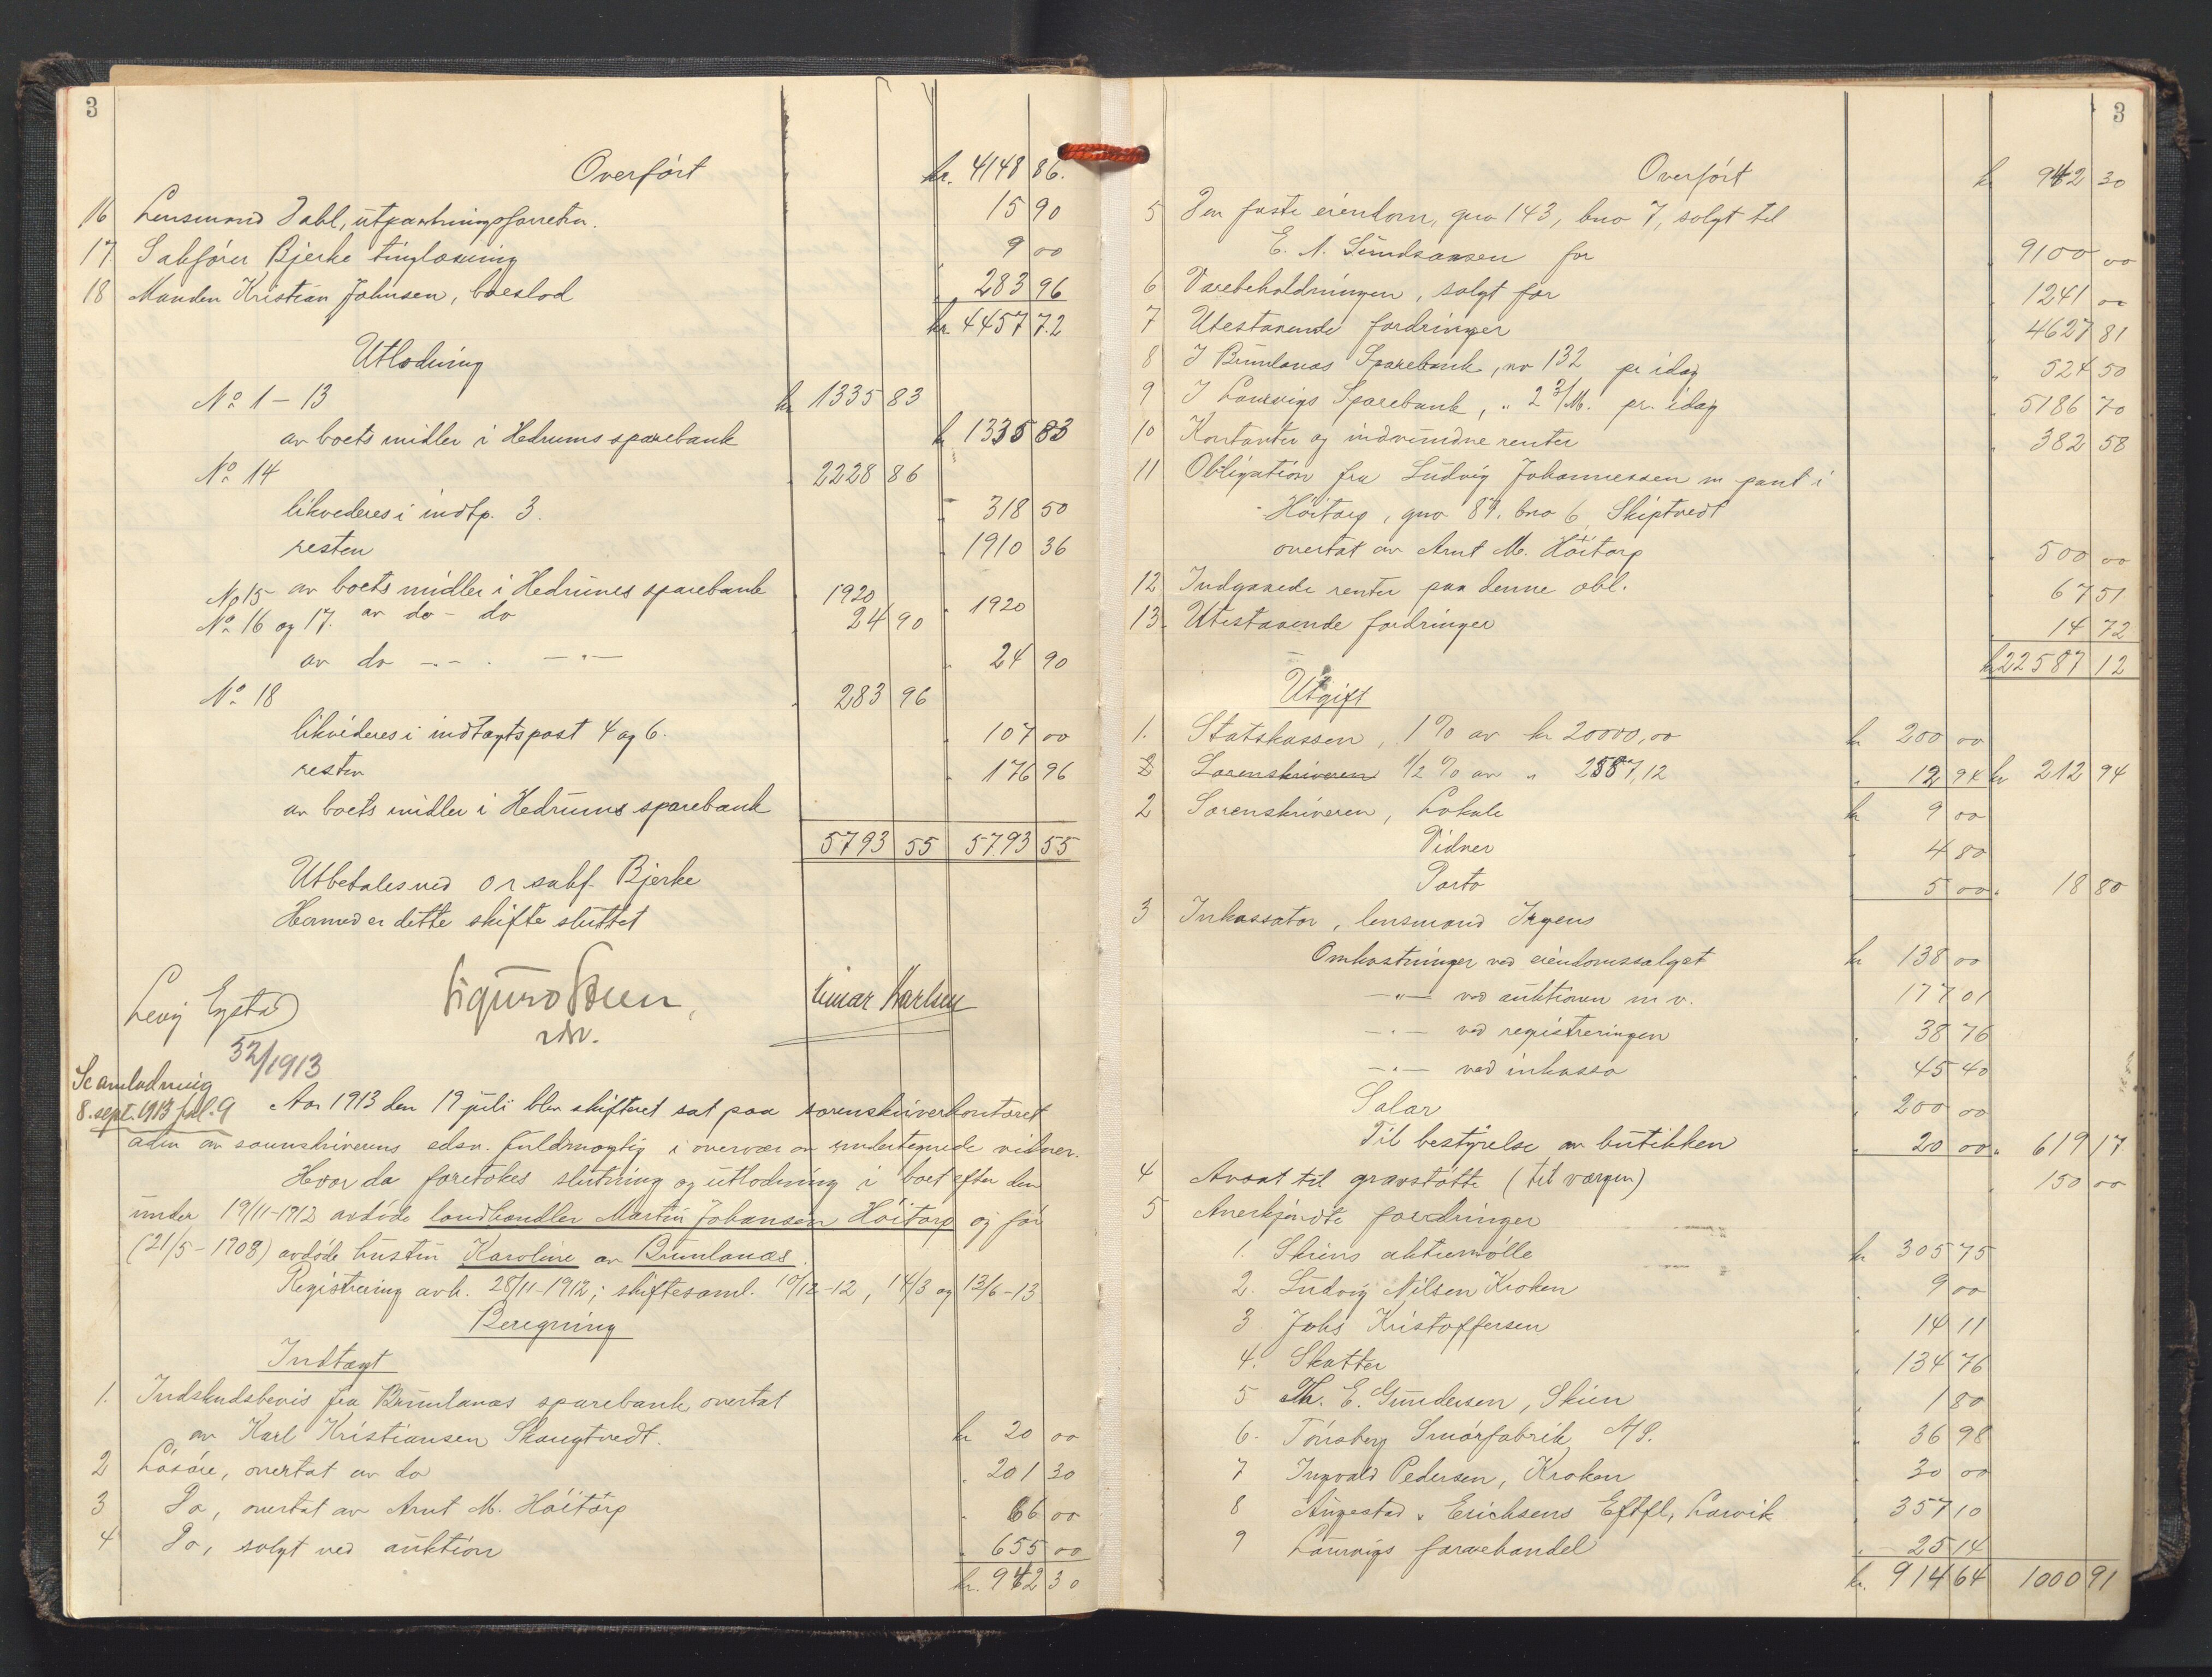 3
Overført kr. 4148 86.
16 Lensmand Dahl, utpantningsforretn. 15 90
17. Sakfører Bjerke tinglæsning 9 00
18 Manden Kristian Johnsen, boeslod 283 96
kr. 4457 72
Utlodning
No 1 – 13 kr 1335 83
av boets midler i Hedrums sparebank kr 1335 83
No 14 2228 86
likvideres i indtp. 3. 318 50
resten 1910 36
av boets midler i Hedrums sparebank
No 15 1920
av do – do 1920
No 16 og 17. 24 90
av do – – . – " – 24 90
No 18 283 96
likvideres i indtægtspost 4 og 6. 107 00
resten 176 96
av boets midler i Hedrums sparebank
5793 55 5793 55
Utbetales ved o r sakf. Bjerke
Hermed er dette skifte sluttet
Levy Eystad Sigurd Steen Einar Karlsen
52/1913
Se omlodning
8. sept. 1913 fol. 9
Aar 1913 den 19 juli blev skifteret sat paa sorenskriverkontoret
adm av sorenskriverens edsv. fuldmægtig i overvær av undertegnede vidner.
Hvor da foretokes slutning og utlodning i boet efter den
under 19/11-1912 avdøde landhandler Martin Johansen Høitorp og før
(21/5-1908) avdøde hustru Karoline av Brunlanæs.
Registrering avh. 28/11-1912; skiftesaml. 10/12-12, 14/3 og 13/6-13
Beregning
Indtægt
1. Indskudsbevis fra Brunlanæs sparebank overtat
av Karl Kristiansen Skaugtvedt. kr 20 00
2 Løsøre, overtat av do 201 30
3 Do, overtat av Arnt M. Høitorp 66 00
4 Do, solgt ved auktion 655 00
kr. 942 30
3
Overført kr 942 30
5 Den faste eiendom, gno 143, bno 7, solgt til
E. A. Gundersen for 9100 00
6 Varebeholdningen, solgt for 1241 00
7 Utestaaende fordringer 4627 81
8 I Brunlanæs Sparebank, no 132 pr idag 524 50
9 I Laurvigs Sparebank, " 23/M. pr. idag 5186 70
10 Kontanter og indvundne renter 382 58
11 Obligation fra Ludvig Johannessen m pant i
Høitorp, gno 87. bno 6, Skiptvedt
overtat av Arnt M. Høitorp 500 00
12 Indgaaede renter paa denne obl. 67 51
13. Utestaaende fordringer 14 72
kr 22587 12
Utgift
1. Statskassen, 1% av kr 20000,00 kr 200 00
2 Sorenskriveren 1/2 % av " 2587,12 12 94 kr 212 94
2 Sorenskriveren, Lokale kr 9 00
Vidner 4 80
Porto 5 00 18 80
3 Inkassator, lensmand Irgens
Omkostninger ved eiendomssalget kr 138 00
– " – ved auktionen m v. 177 01
– " – ved registreringen 38 76
– " – ved inkasso 45 40
Salær 200 00
Til bestyrelse av butikken 20 00 619 17
4 Avsat til gravstøtte (til værgen) 150 00
5 Anerkjendte fordringer
1. Skiens aktiemølle kr 305 75
2. Ludvig Nilsen Kroken 9 00
3 Johs Kristoffersen 14 11
4. Skatter 134 76
5 Th. E. Gundersen, Skien 1 80
6. Tønsberg Smørfabrik A/S. 36 98
7 Ingvald Pedersen, Kroken 30 00
8 Augestad & Erichsens Eftfl, Larvik 357 10
9 Laurvigs farvehandel 25 14
kr. 914 64 1000 91